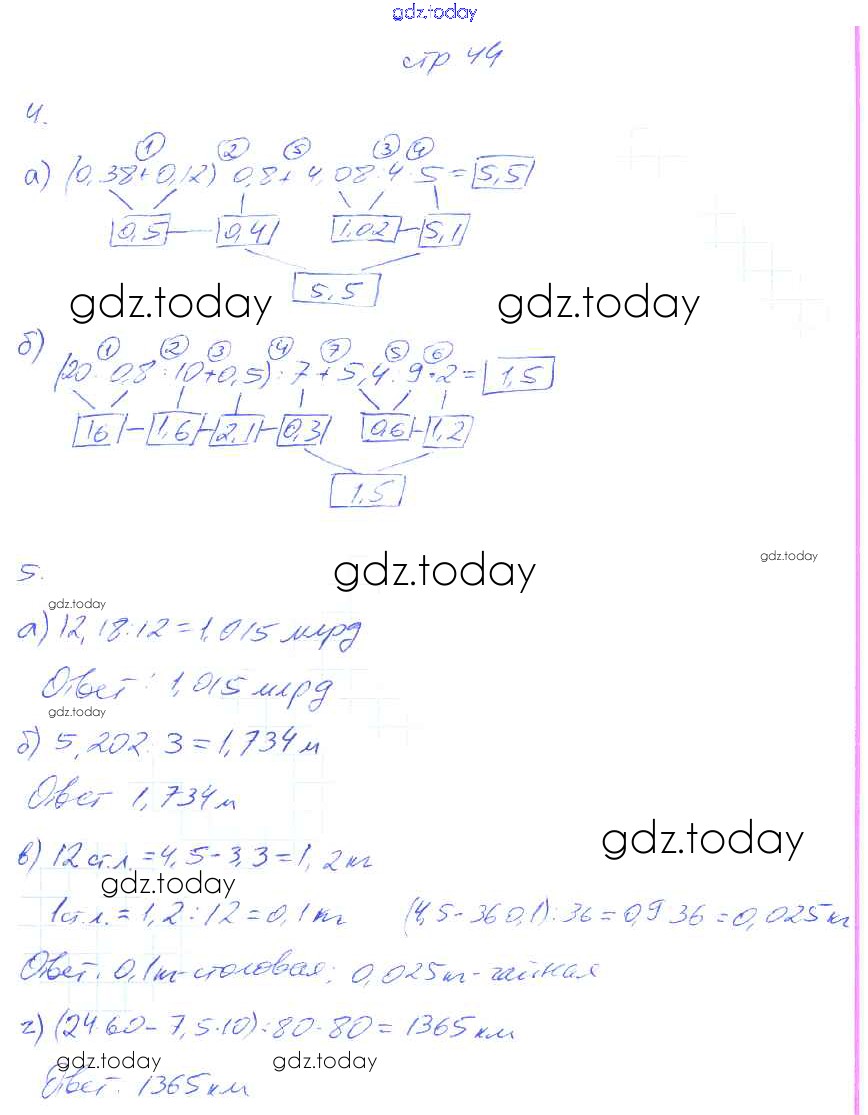 gdz.today
стр 44
4.
1 2 5 3 4
а) (0,38+0,12) 0,8+4,08:4·5=5,5
0,5 0,4 1,02 5,1
5,5
gdz.today gdz.today
б) 1 2 3 4 7 5 6
(20·0,8:10+0,5):7+5,4:9·2=1,5
16 1,6 2,1 0,3 0,6 1,2
1,5
gdz.today
5. gdz.today
gdz.today
а) 12,18:12=1,015 млрд
Ответ: 1,015 млрд
gdz.today
б) 5,202:3=1,734 м
Ответ 1,734 м
gdz.today
в) 12 ст.л.=4,5-3,3=1,2 кг
gdz.today
1 ст.л.=1,2:12=0,1 кг (4,5-36 0,1):36=0,9 36=0,025 кг
Ответ: 0,1 кг-столовая; 0,025 кг-чайная
г) (2460-7,5·10):80·80=1365 км
gdz.today gdz.today
Ответ: 1365 км